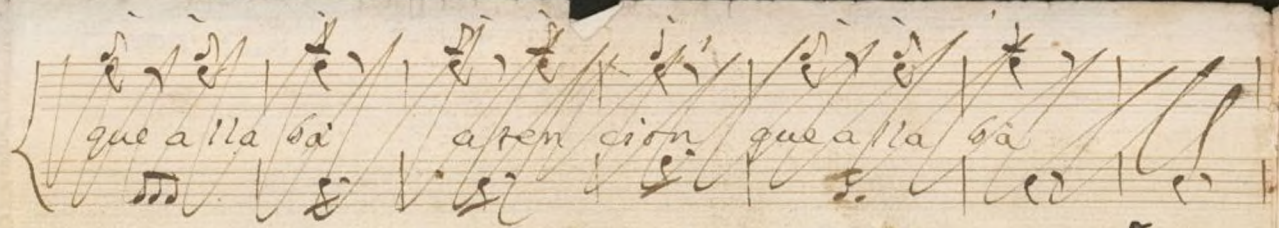 que a lla bà atencion que a lla bà